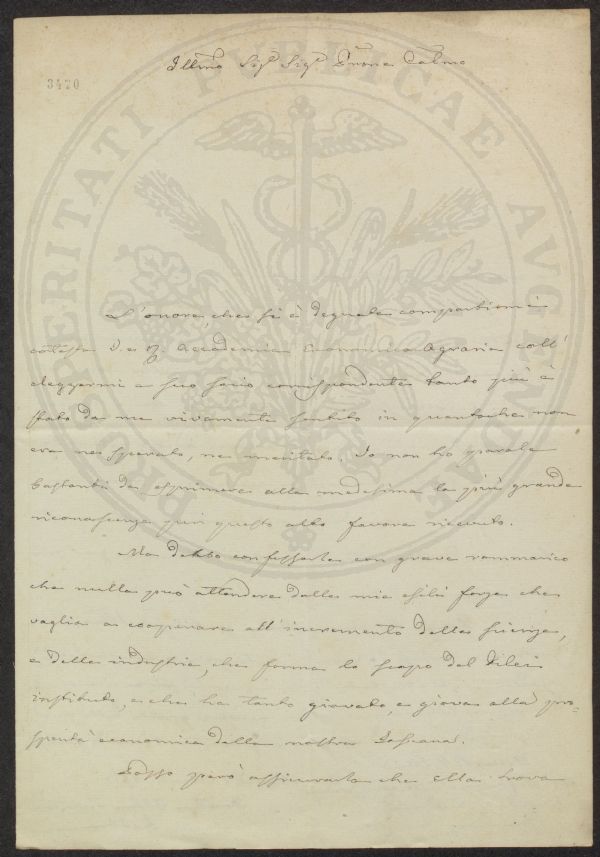 Illmo Sigr. Sigr. Prone Colmo
3470
PROSPERITATI PUBLICAE AUGENDAE
L'onore, che si è degnata compartirmi
cotesta I. e R. Accademia Economico Agraria coll'
eleggermi a suo socio corrispondente tanto più è
stato da me vivamente sentito in quantoche non
era nè sperato, nè meritato. Io non ho parole
bastanti da esprimere alla medesima la più grande
riconoscenza per questo alto favore ricevuto.
Ma debbo confessarle con grave rammarico
che nulla può attendere dalle mie esili forze che
vaglia a cooperare all'incremento della scienza,
e della industria, che forma lo scopo del di lei
instituto, e che ha tanto giovato, e giova alla pro-
sperità economica della nostra Toscana.
Posso però assicurarla che ella trova